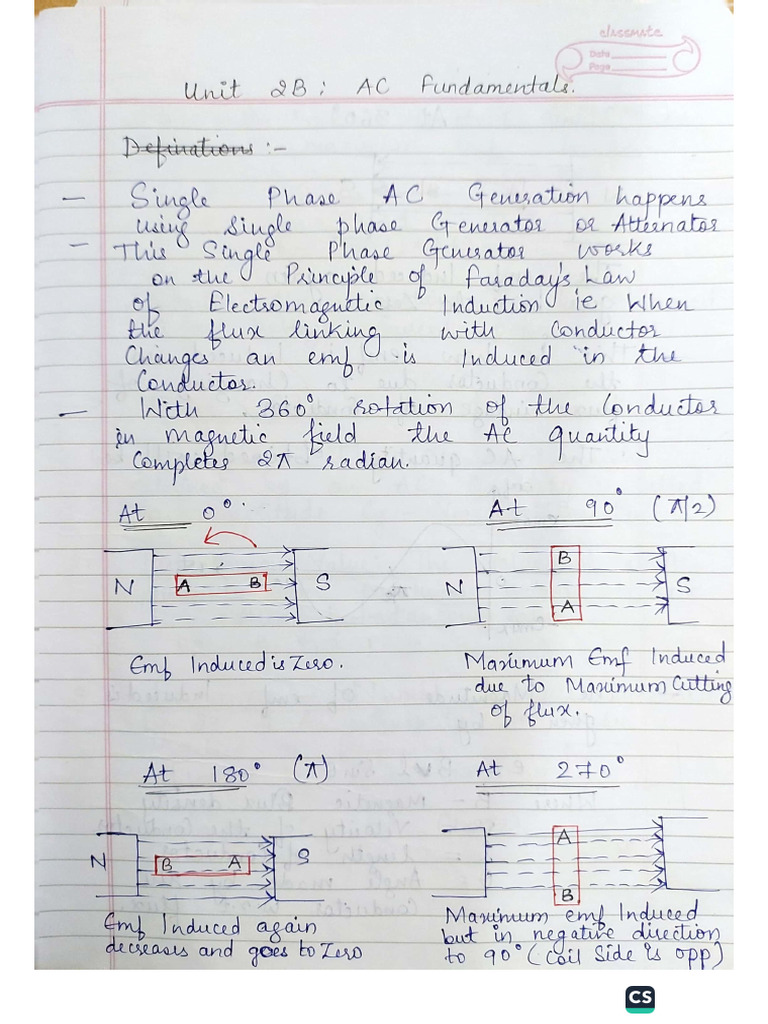 classmate
Date
Page
Unit 2B: AC Fundamentals.
Definations :-
- Single Phase AC Generation happens
using single phase Generator or Alternator
- This Single Phase Generator works
on the Principle of Faraday's Law
of Electromagnetic Induction ie When
the flux linking with Conductor
Changes an emf is Induced in the
Conductor.
- With 360° rotation of the Conductor
in magnetic field the AC quantity
Completes 2π radian.
At 0°.
At 90° (π/2)
N A B S
N B A S
Emf Induced is Zero.
Maximum Emf Induced
due to Maximum Cutting
of flux.
At 180° (π)
At 270°
N B A S
A B
Emf Induced again
decreases and goes to Zero
Maximum emf Induced
but in negative direction
to 90° (Coil Side is opp)
CS